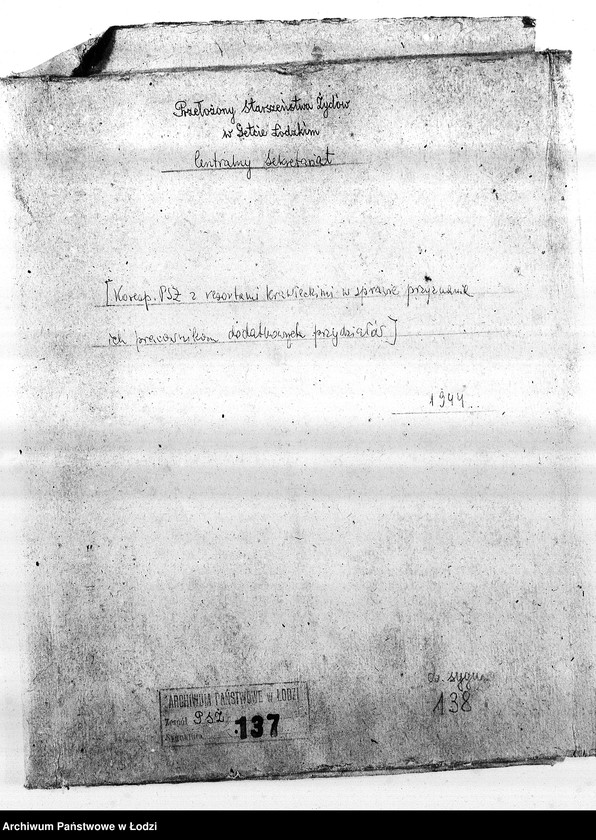 Przełożony Starszeństwa Żydów
w Getcie Łódzkim
Centralny Sekretariat
[Koresp. PSŻ z resortami krawieckimi w sprawie przyznania
ich pracownikom dodatkowych przydziałów]
1944.
ARCHIWUM PAŃSTWOWE w ŁODZI
Zespół PSŻ
Sygnatura 137
d. sygn.
138
Archiwum Państwowe w Łodzi